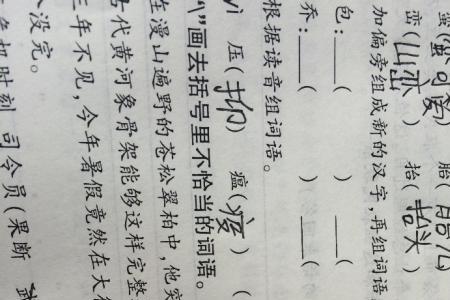 胎(胎儿
峦(山峦) 抬(抬头)
加偏旁组成新的汉字,再组词语
包:____( ) ____(
乔:____( ) ____(
根据读音组词语。
yì 压(抑) 瘟(疫) (
"\"画去括号里不恰当的词语。
在漫山遍野的苍松翠柏中,他突
代黄河象骨架能够这样完整
三年不见,今年暑假竟然在大
没完。
机时刻,司令员(果断 武